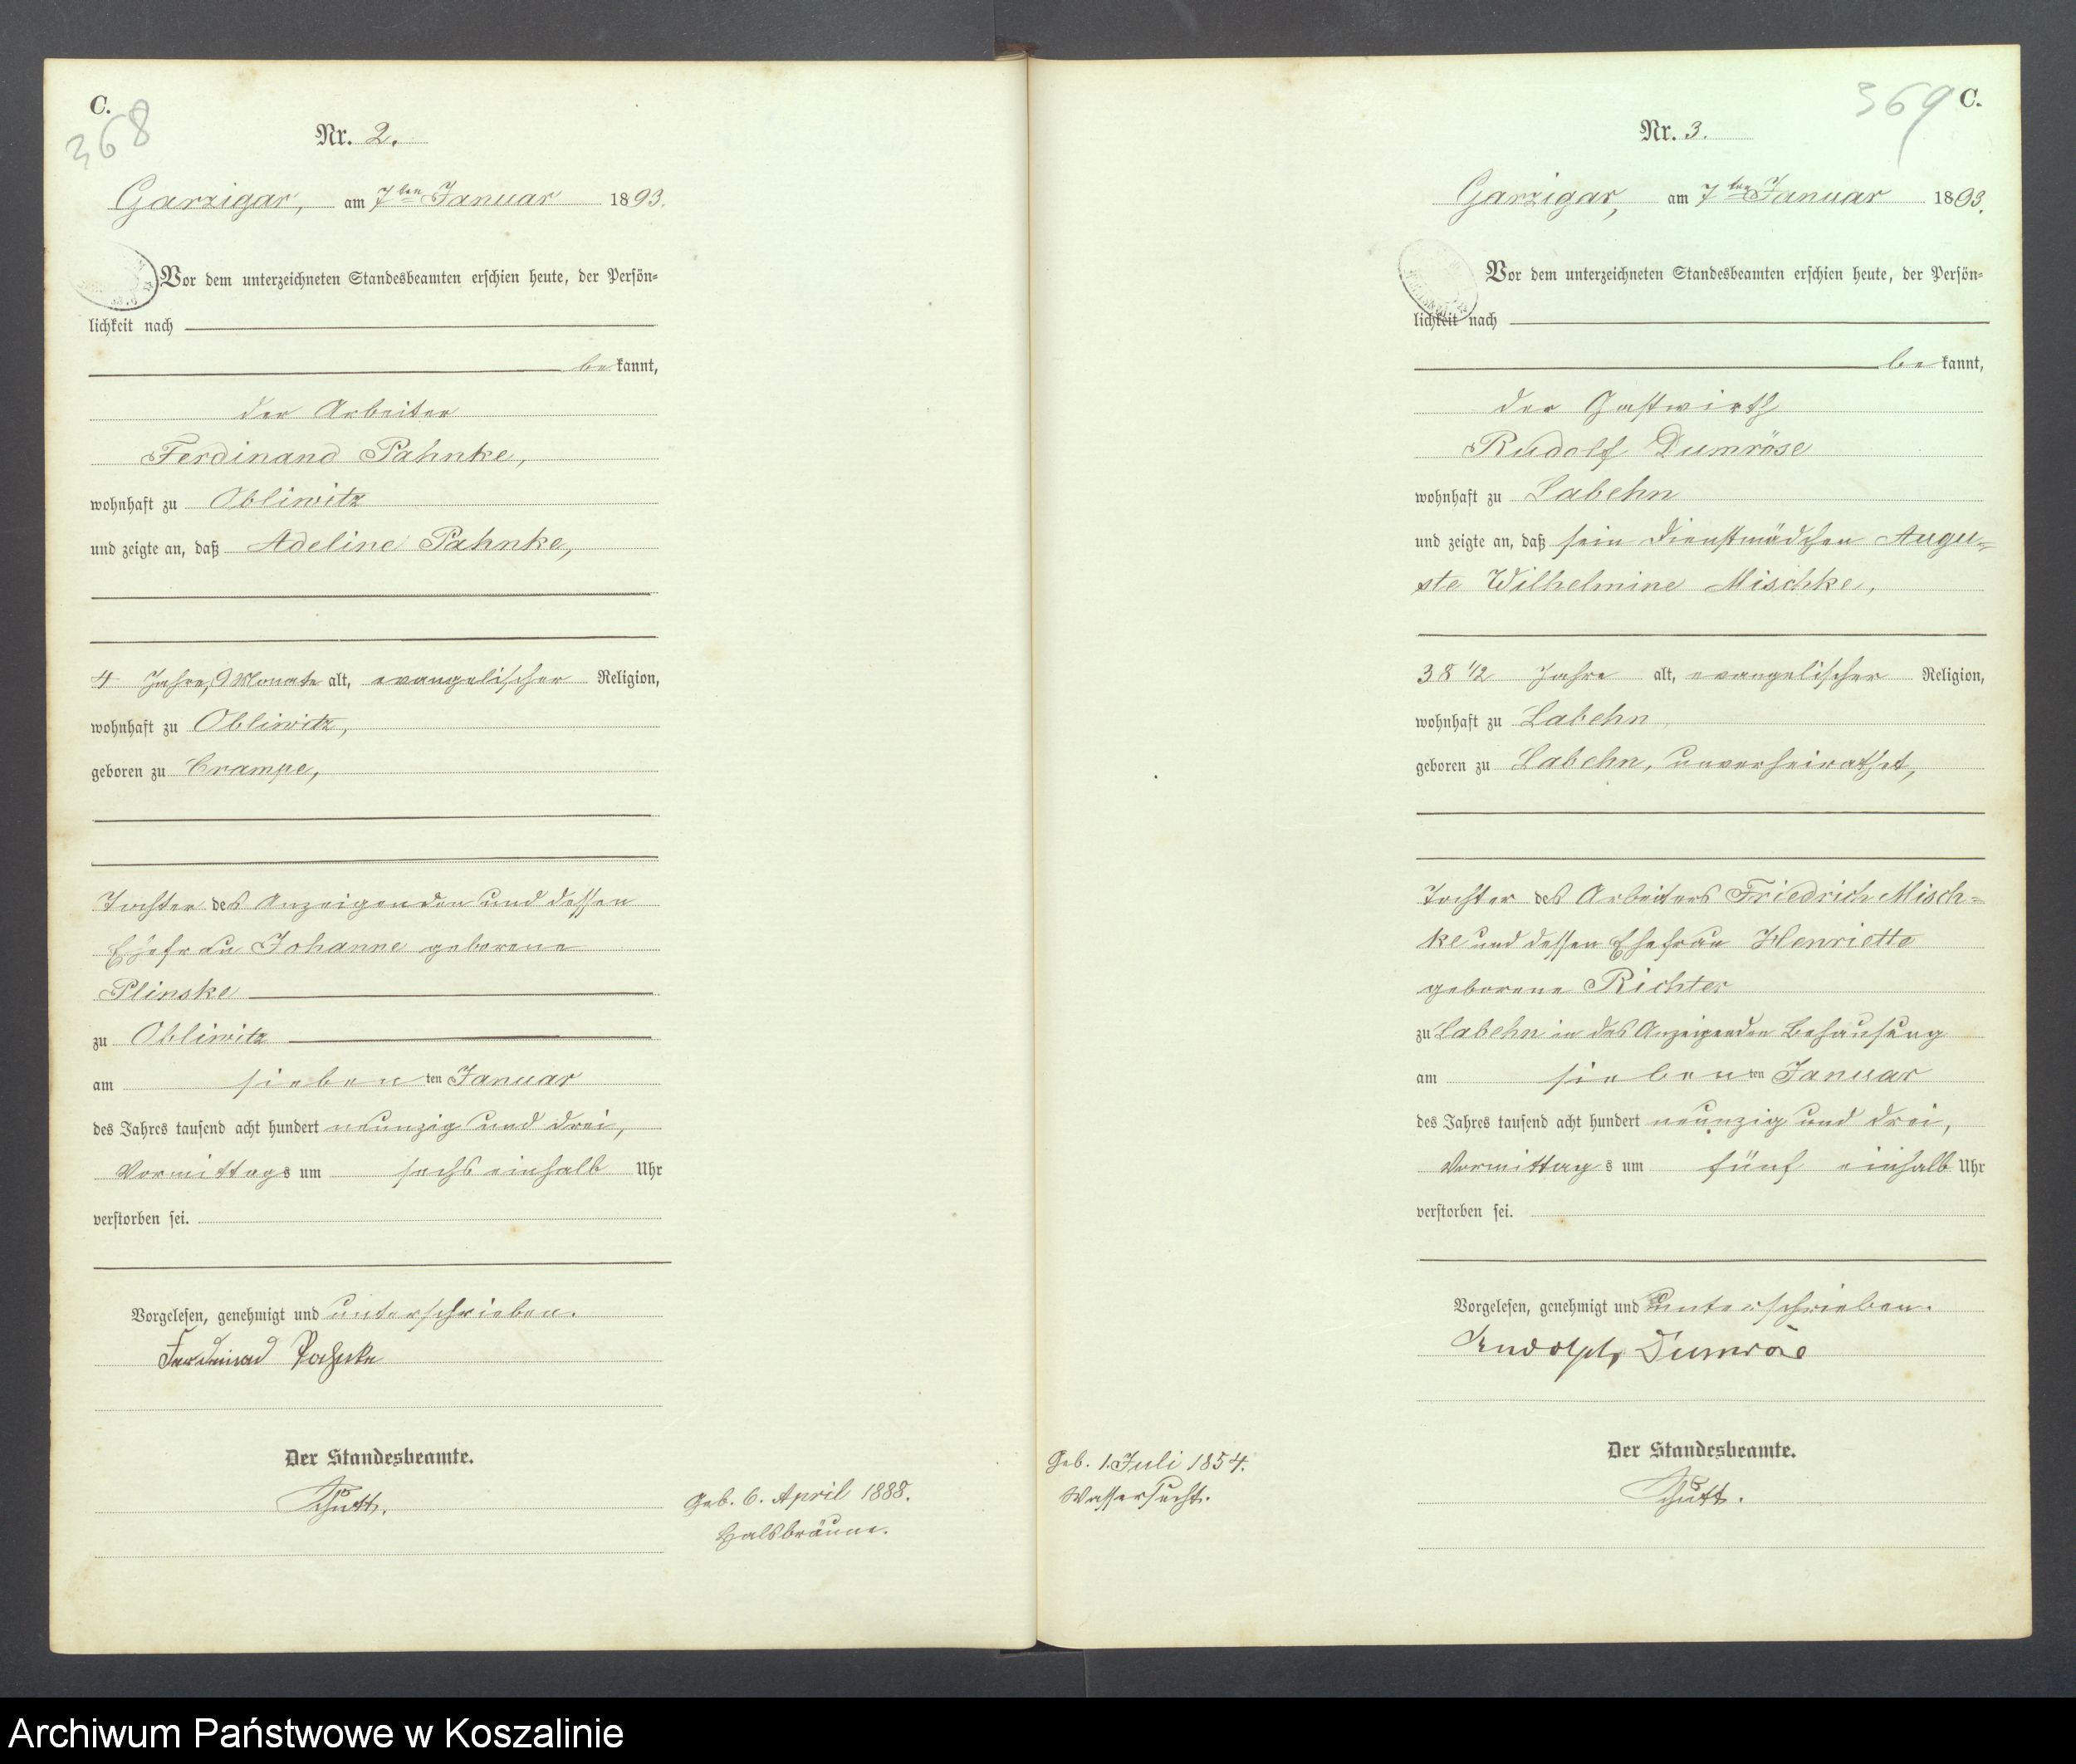 C.
368
Nr. 2.
Garzigar, am 7ten Januar 1893.
Vor dem unterzeichneten Standesbeamten erschien heute, der Persön-
lichkeit nach
bekannt,
der Arbeiter
Ferdinand Pahnke,
wohnhaft zu Obliwitz
und zeigte an, daß Adeline Pahnke,
4 Jahre, 9 Monate alt, evangelischer Religion,
wohnhaft zu Obliwitz,
geboren zu Crampe,
Tochter des Anzeigenden und dessen
Ehefrau Johanne geborene
Plinske
zu Obliwitz
am siebenten Januar
des Jahres tausend acht hundert neunzig und drei,
Vormittags um sechs einhalb Uhr
verstorben sei.
Vorgelesen, genehmigt und unterschrieben.
Ferdinad Pahnke
Der Standesbeamte.
Schütt.
Geb. 6. April 1888.
Halsbräune.
369 C.
Nr. 3.
Garzigar, am 7ten Januar 1893.
Vor dem unterzeichneten Standesbeamten erschien heute, der Persön-
lichkeit nach
bekannt,
der Gastwirth
Rudolf Dumröse
wohnhaft zu Labehn
und zeigte an, daß sein Dienstmädchen Augu-
ste Wilhelmine Mischke,
38 1/2 Jahre alt, evangelischer Religion,
wohnhaft zu Labehn,
geboren zu Labehn, unverheirathet,
Tochter des Arbeiters Friedrich Misch-
ke und dessen Ehefrau Henriette
geborene Richter
zu Labehn in des Anzeigenden Behausung
am siebenten Januar
des Jahres tausend acht hundert neunzig und drei,
Vormittags um fünf einhalb Uhr
verstorben sei.
Vorgelesen, genehmigt und unterschrieben.
Rudolph Dumröse
Der Standesbeamte.
Schütt.
Geb. 1. Juli 1854.
Wassersucht.
Archiwum Państwowe w Koszalinie